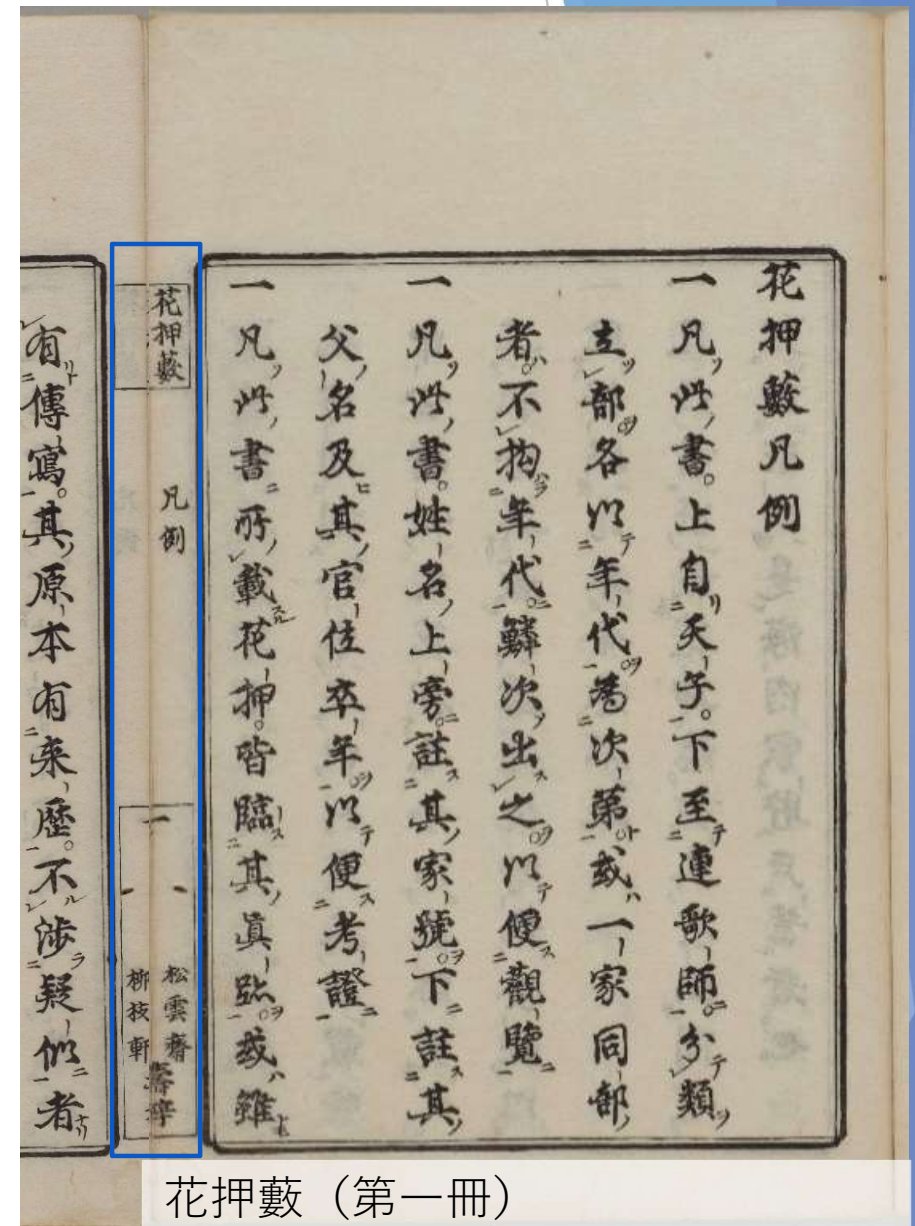 花押藪凡例
一凡此書。上自天子。下至連歌師。分類
立部各以年代為次第或一家同部
者。不拘年代鱗次出之以便觀覽
一凡此書姓名上旁註其家號下註其
父名及其官位卒年以便考證
一凡此書所載花押。皆臨其真跡。或雖
花押藪
凡例
一
松雲齋
柳枝軒
有傳寫。其原本有来歷。不涉疑似者
花押藪（第一冊）